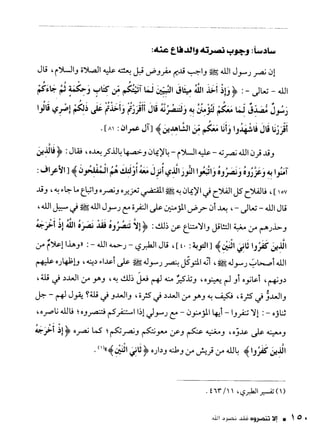 سادساً: وجوب نصرته والدفاع عنه:
إن نصر رسول الله ﷺ واجب قديم مفروض قبل بعثته عليه الصلاة والسلام، وقال
الله - تعالى -: ﴿وَإِذْ أَخَذَ اللَّهُ مِيثَاقَ النَّبِيِّينَ لَمَا آتَيْتُكُم مِّن كِتَابٍ وَحِكْمَةٍ ثُمَّ جَاءَكُمْ
رَسُولٌ مُّصَدِّقٌ لِّمَا مَعَكُمْ لَتُؤْمِنُنَّ بِهِ وَلَتَنصُرُنَّهُ قَالَ أَأَقْرَرْتُمْ وَأَخَذْتُمْ عَلَىٰ ذَٰلِكُمْ إِصْرِي قَالُوا
أَقْرَرْنَا قَالَ فَاشْهَدُوا وَأَنَا مَعَكُم مِّنَ الشَّاهِدِينَ﴾ [آل عمران: ٨١].
وقد قرن الله نصرته - عليه السلام - بالإيمان وخصهما بالذكر بعده، فقال: ﴿فَالَّذِينَ
آمَنُوا بِهِ وَعَزَّرُوهُ وَنَصَرُوهُ وَاتَّبَعُوا النُّورَ الَّذِي أُنزِلَ مَعَهُ أُولَٰئِكَ هُمُ الْمُفْلِحُونَ﴾ [الأعراف:
١٥٧] فالفلاح كل الفلاح في الإيمان به ﷺ المقتضي تعزيره ونصره واتباع ما جاء به، وقد
قال الله - تعالى -، بعد أن حرض المؤمنين على النفرة مع رسول الله ﷺ في سبيل الله،
وحذرهم من مغبة التثاقل والامتناع عن ذلك: ﴿إِلَّا تَنصُرُوهُ فَقَدْ نَصَرَهُ اللَّهُ إِذْ أَخْرَجَهُ
الَّذِينَ كَفَرُوا ثَانِيَ اثْنَيْنِ﴾ [التوبة: ٤٠]، قال الطبري - رحمه الله -: «وهذا إعلام من
الله أصحاب رسوله ﷺ، أنه المتوكل بنصر رسوله على أعداء دينه، وإظهاره عليهم
دونهم، أعانوه أو لم يعينوه، وتذكير منه لهم فعل ذلك به، وهو من العدد في قلة،
والعدو في كثرة، فكيف به، وهو من العدد في كثرة، والعدو في قلة؟ يقول لهم - جل
ثناؤه -: إلا تنفروا - أيها المؤمنون - مع رسولي إذا استنفركم فتنصروه؛ فالله ناصره،
ومعينه على عدوه، ومغنيه عنكم وعن معونتكم ونصرتكم؛ كما نصره ﴿إِذْ أَخْرَجَهُ
الَّذِينَ كَفَرُوا﴾ بالله من قريش من وطنه وداره ﴿ثَانِيَ اثْنَيْنِ﴾»(١).
(١) تفسير الطبري، ١١/ ٤٦٣.
١٥٠ ■ إلا تنصروه فقد نصره الله